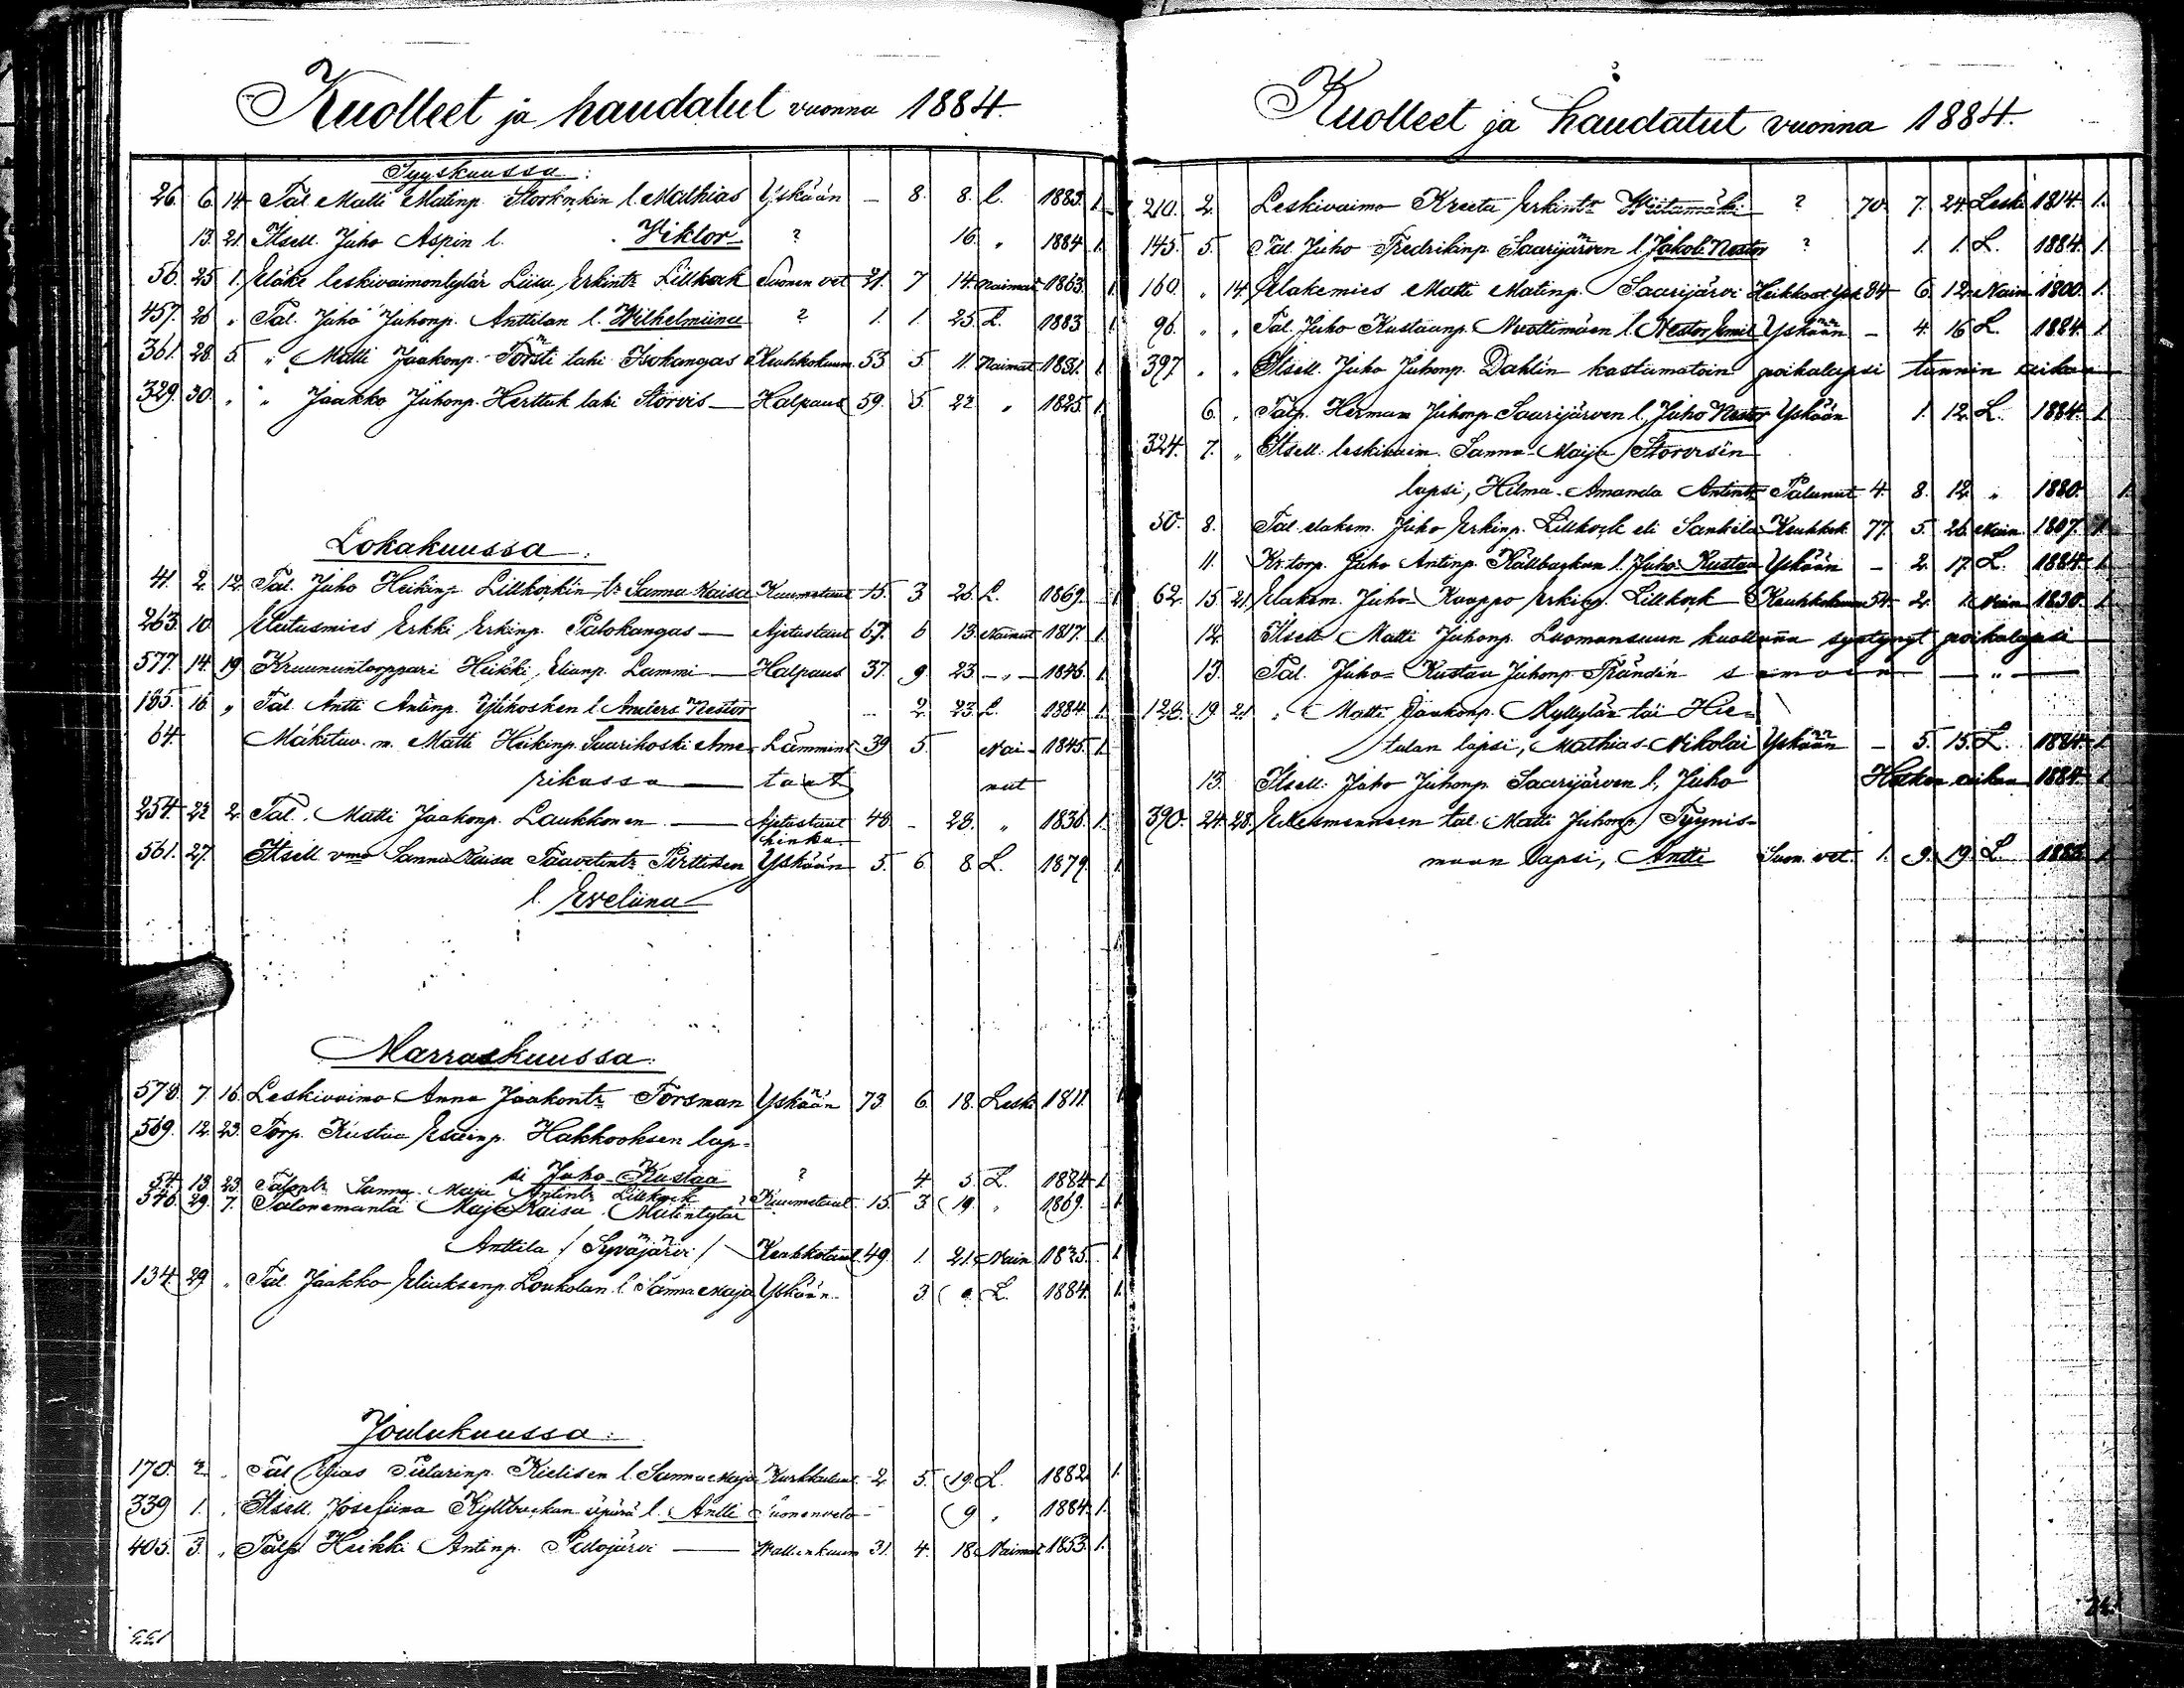 Kuolleet ja haudatut vuonna 1884.
Syyskuussa:
26. 6. 14 Tal. Matti Matinp. Storkorkin l. Mathias Yskään — 8. 8. L. 1883. 1.
13. 21. Itsell. Juho Aspin l. Viktor ? 16. " 1884 1.
56. 25 1. Eläke leskivaimontytär Liisa Erkintr. Lillkork Suonen vet 21. 7 14. Naimat. 1863. 1.
457. 26 " Tal. Juho Juhonp. Anttilan l. Wilhelmiina ? 1. 1. 25. L. 1883 1.
361. 28. 5. " Matti Jaakonp. Torsti lahi Isokangas Keuhkokuum. 53 5 11. Naimat 1831. 1
329. 30. " " Jaakko Juhonp. Herttuk lahi Storvis — Halpaus 59. 5. 22 " 1825. 1.
Lokakuussa:
41 2. 12. Tal. Juho Heikinp. Lillkorkin tr. Sanna Kaisa Kuumetaut 15. 3 26. L. 1869. 1.
263. 10 Elatusmies Erkki Erkinp. Palokangas — Ajetustaut 67. 6 13. Nainut 1817. 1.
577. 14. 19 Kruununtorppari Heikki Elianp. Lammi — Halpaus 37. 9. 23 — " — 1846. 1.
185. 16 " Tal. Antti Antinp. Ylikosken l. Anders Nestor 2. 23. L. 1884 1.
64. Mäkituv. m. Matti Heikinp. Suurikoski Ame- Lämmint 39 5. Nai- 1845. 1
rikassa — taut nut
254. 22 2. Tal. Matti Jaakonp. Laukkonen — Ajetustaut 48 - 28. " 1836. 1.
hinku.
561. 27. Itsell vmo Sanna Kaisa Taavetintr. Pirttisen Yskään 5. 6. 8. L. 1879. 1.
l. Eveliina
Marraskuussa:
578. 7. 16. Leskivaimo Anna Jaakontr. Forsman Yskään 73 6. 18. Leski 1811. 1
569. 12. 23. Torp. Kustaa Esainp. Hakkooksen lap-
si Juho Kustaa ? 4. 5. L. 1884 1
54. 13. 23. Talontr. Sanna Maija Antintr. Lillkork Kuumetaut. 15. 3 19. " 1869. 1.
546. 29. 7. Talonemäntä Maija Kaisa Matintytär
Anttila / Syväjärvi / Keuhkotaut. 49. 1. 21. Nain. 1835. 1.
134. 29 " Tal. Jaakko Eliaksenp. Loukolan l. Sanna Maija Yskään. 3 9. L. 1884. 1.
Joulukuussa:
170. 2. " Tal Elias Pietarinp. Kielisen l. Sanna Maja Kurkkutaut. 2 5. 19. L. 1882. 1.
339 1. " Itsell. Josefiina Kyllbackan äpärä l. Antti Suonenveto - 9 " 1884. 1.
405. 3. " Talp. Heikki Antinp. Peltojärvi — 31. 4. 18. Naimat 1853. 1.
Kuolleet ja haudatut vuonna 1884.
210. 2. Leskivaimo Kreeta Erkintr. Wiitamäki ? 70. 7. 24. Leski 1814. 1.
145. 5. Tal. Juho Fredrikinp. Saarijärven l. Jakob Nestor ? 1. 1. L. 1884. 1.
160. " 14. Eläkemies Matti Matinp. Saarijärvi Heikkout. Ysk. 84 6. 12. Nain 1800. 1.
96. " " Tal. Juho Kustaanp. Mustimäen l. Nestor Emil Yskään - 4. 16 L. 1884. 1
397. " " Itsell. Juho Juhonp. Dahlin kastamatoin poikalapsi tunnin aikan
6. " Talp. Herman Juhonp. Saarijärven l. Juho Nestor Yskään 1. 12. L. 1884. 1
324. 7. " Itsell. leskivaim. Sanna Maija Storvisin
lapsi, Hilma Amanda Antintr. Palanut 4. 8. 12. " 1880. 1.
50. 8. Tal. eläkem. Juho Erkinp. Lillkork eli Sankila Keuhkok 77. 5. 26. Nain 1807. 1.
11. Kr. torp. Juho Antinp. Källbackan l. Juho Kustaa Yskään - 2. 17. L. 1884. 1.
62. 15. 21. Eläkem. Juho Kaappo Erkinp. Lillkork Keuhkokuum 54. 2. 1. Nain 1830. 1.
12. Itsell. Matti Juhonp. Luomansuun kuolluna syntynyt poikalapsi
13. Tal. Juho Kustaa Juhonp. Brändin samoin — " —
128. 19. 21. " Matti Jaakonp. Myllylän tai Hie-
talan lapsi, Mathias Nikolai Yskään - 5. 15. L. 1884. 1.
13. Itsell. Juho Juhonp. Saarijärven l. Juho Hätken aikan 1884. 1.
390. 24. 28. Edesmenneen tal. Matti Juhonp. Tyynis-
maan lapsi, Antti Suon. vet. 1. 9. 19. L. 1883. 1.